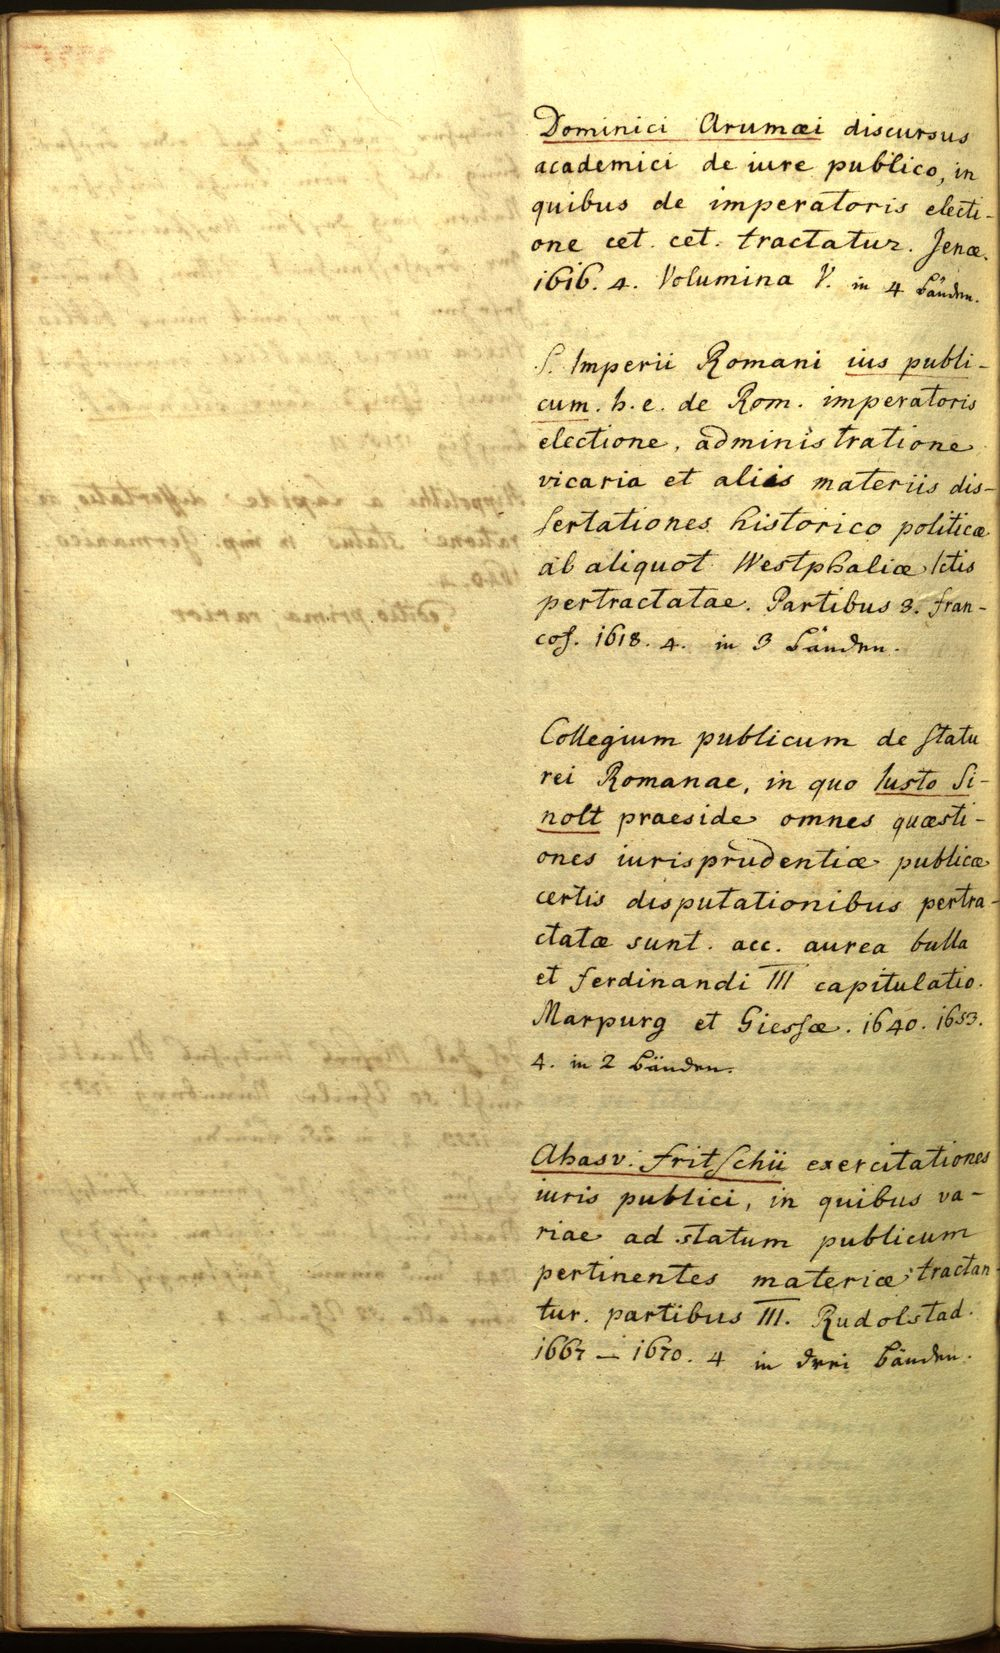 Dominici Arumæi discursus
academici de iure publico, in
quibus de imperatoris electi-
one cet. cet. tractatur. Jenæ.
1616. 4. Volumina V. in 4 Bänden.
S. Imperii Romani ius publi-
cum. h. e. de Rom. imperatoris
electione, administratione
vicaria et aliis materiis dis-
sertationes historico politicæ
ab aliquot Westphaliæ Ictis
pertractatae. Partibus 3. Fran-
cof. 1618. 4. in 3 Bänden.
Collegium publicum de statu
rei Romanae, in quo Iusto Si-
nolt praeside omnes quæsti-
ones iurisprudentiæ publicæ
certis disputationibus pertra-
ctatæ sunt. acc. aurea bulla
et Ferdinandi III capitulatio.
Marpurg et Giessæ. 1640. 1653.
4. in 2 Bänden.
Ahasv. Fritschii exercitationes
iuris publici, in quibus va-
riae ad statum publicum
pertinentes materiæ tractan-
tur. partibus III. Rudolstad.
1667 – 1670. 4 in drei Bänden.